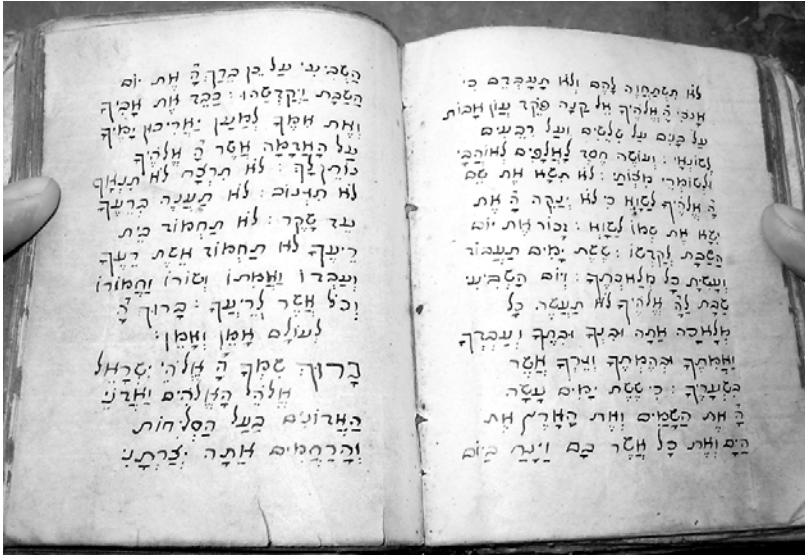 לא תשתחוה להם ולא תעבדם כי
אנכי ה אלהיך אל קנה פקד עון אבות
על בנים על שלשים ועל רבעים
לשונאי : ועושה חסד לאלפים לאוהבי
ולשומרי מצותי : לא תשא את שם
ה אלהיך לשוא כי לא ינקה ה את
ישא את שמו לשוא : זכור את יום
השבת לקדשו : ששת ימים תעבוד
ועשית כל מלאכתך : ויום השביעי
שבת לה אלהיך לא תעשה כל
מלאכה אתה ובנך ובתך ועבדך
ואמתך ובהמתך וגרך אשר
בשעריך : כי ששת ימים עשה
ה את השמים ואת הארץ את
הים ואת כל אשר בם וינח ביום
השביעי על כן ברך ה את יום
השבת ויקדשהו : כבד את אביך
ואת אמך למען יאריכון ימיך
על האדמה אשר ה אלהיך
נותן לך : לא תרצח לא תנאוף
לא תגנוב : לא תענה ברעך
עד שקר : לא תחמוד בית
ריעך לא תחמוד אשת רעך
ועבדו ואמתו ושורו וחמורו
וכל אשר לריעך : ברוך ה
לעולם אמן ואמן :
ברוך שמך ה אלהי ישראל
אלהי האלהים ואדני
האדונים בעל הסליחות
והרחמים אתה יצרתני